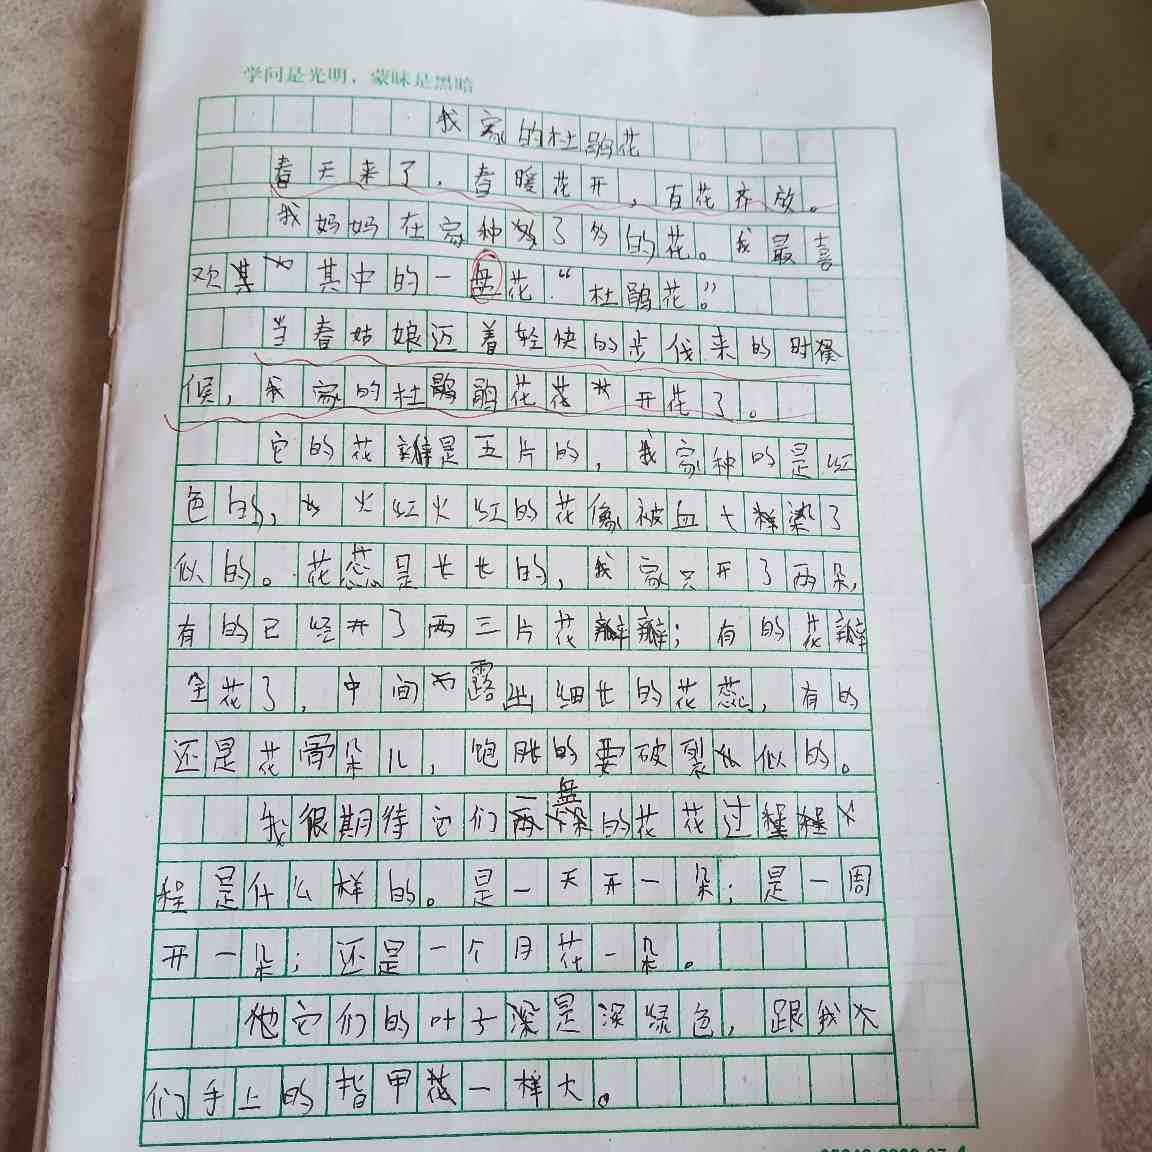 学问是光明，蒙昧是黑暗
我家的杜鹃花
春天来了，春暖花开，百花齐放。
我妈妈在家种了多的花。我最喜
欢其中的一盘花“杜鹃花”。
当春姑娘迈着轻快的步伐来的时候
候，我家的杜鹃花开花了。
它的花瓣是五片的，我家种的是红
色的，火红火红的花像被血一样染了
似的。花蕊是长长的，我家只开了两朵，
有的已经开了两三片花瓣；有的花瓣
全花了，中间露出细长的花蕊，有的
还是花骨朵儿，饱胀的要破裂似的。
我很期待它们一盘的花花过
程是什么样的。是一天开一朵；是一周
开一朵；还是一个月花一朵。
它们的叶子是深绿色，跟我
们手上的指甲花一样大。